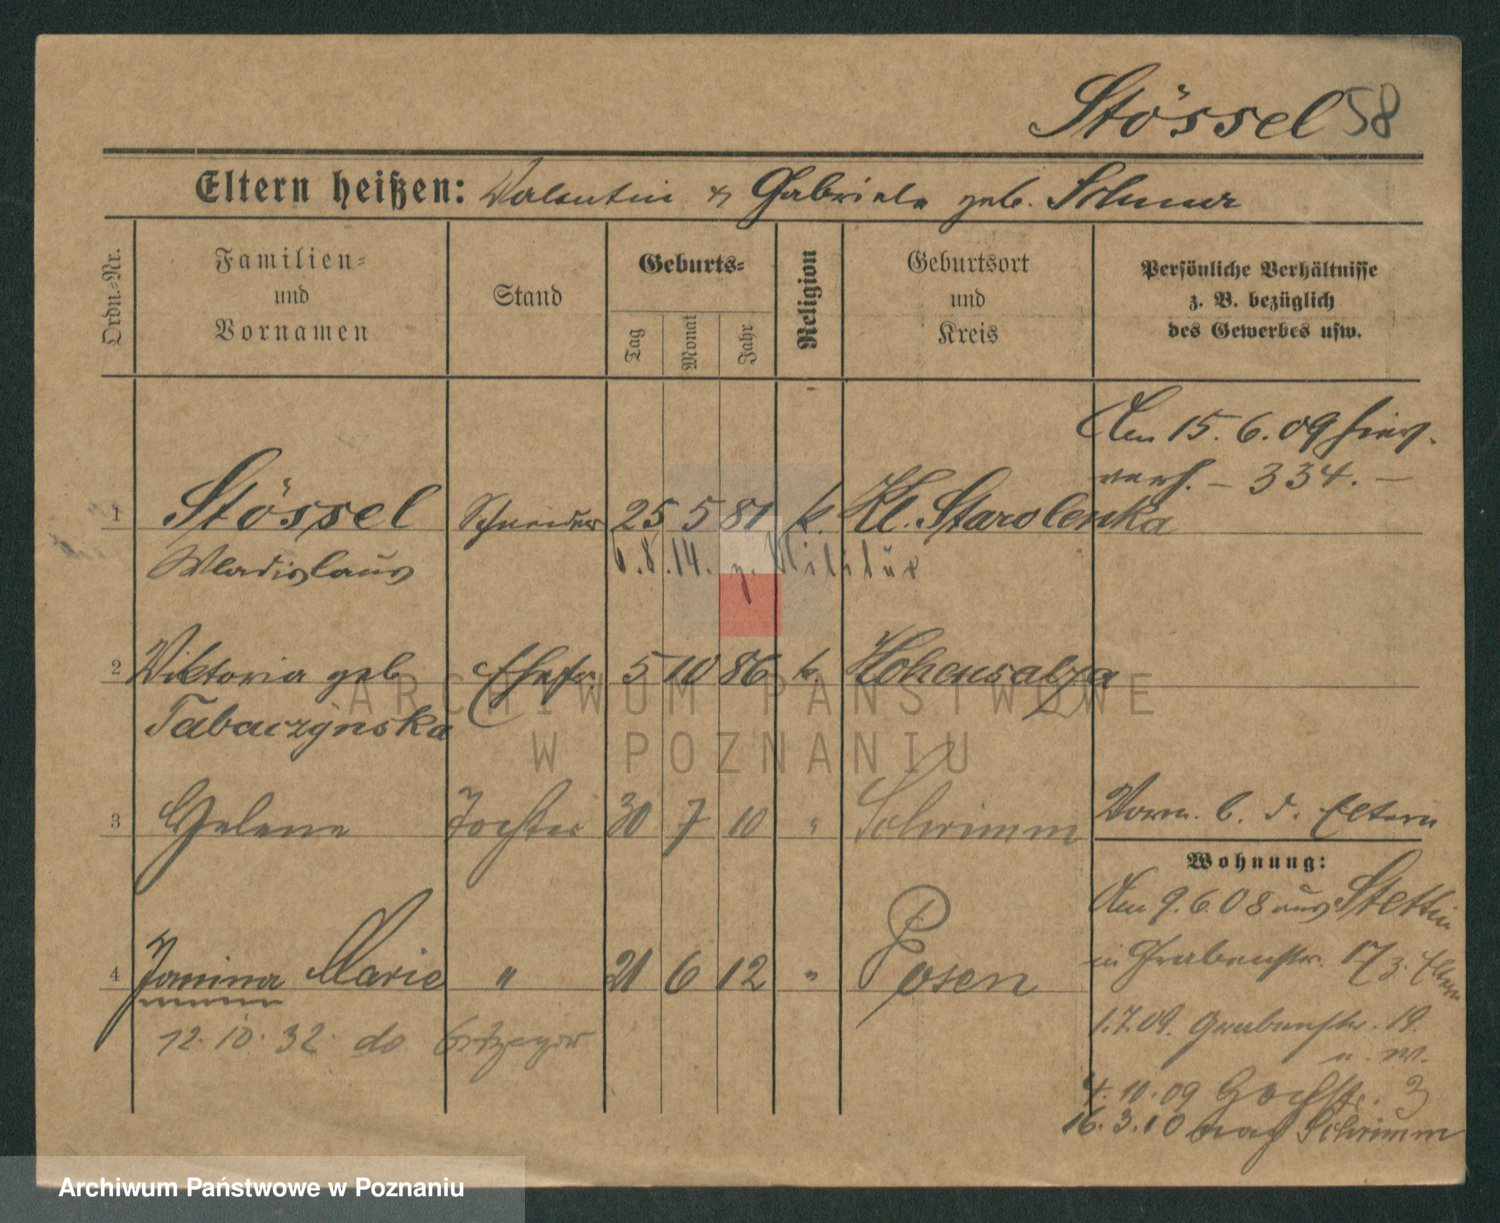 Stössel 58
Eltern heißen: Valentin & Gabriele geb.
Ordn.-Nr.
Familien-
und
Vornamen
Stand
Geburts-
Tag
Monat
Jahr
Religion
Geburtsort
und
Kreis
Persönliche Verhältnisse
z. B. bezüglich
des Gewerbes usw.
Am 15. 6. 09 hier
verh. – 334. –
1 Stössel Schneider 25 5 81 k. Kl. Starolenka
Wladislaus 6. 8. 14. z. Militär
2 Viktoria geb Ehefr. 5 10 86 k. Hohensalza
Tabaczynska
3 Helene Tochter 30 7 10 " Schrimm
Vorm. b. d. Eltern
Wohnung:
Am 9. 6. 08 aus Stettin
in Grabenstr. 17/3.
4 Janina Marie " 21 6 12 " Posen
1.7.09. Grabenstr. 19.
u. W.
12. 10. 32. do
4. 10. 09 3
16. 3. 10 nach Schrimm
ARCHIWUM PAŃSTWOWE
W POZNANIU
Archiwum Państwowe w Poznaniu